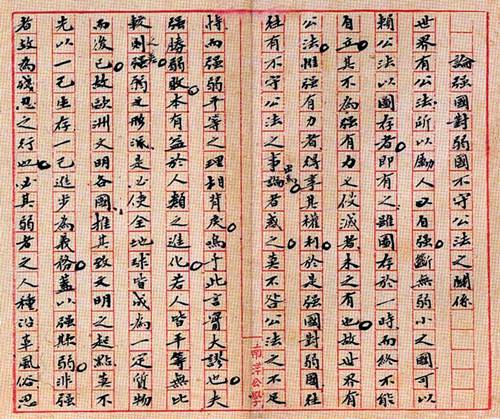 論強國對弱國不守公法之關係
世界有公法所以勵人以自強斷無弱小之國可以
賴公法以圖存者即有之雖圖存於一時而終不能
自立其不為強有力之侵滅者未之有也故世界有
公法惟強有力者得享其權利於是強國對弱國往
往有不守公法之事論者惑之莫不咎公法之不足
恃而強弱平等之理相背戾嗚乎此言實大謬也夫
強勝弱敗本有益於人類之進化若人皆平等無比
較則強弱之形混是必使全地球皆成為一定質物
而後已故歐洲文明各國推其致文明之起點莫不
先以一己生存一己進步為義務蓋以強欺弱非強
者故為殘忍之行也必其弱者之人種沿革風俗思
南洋公學